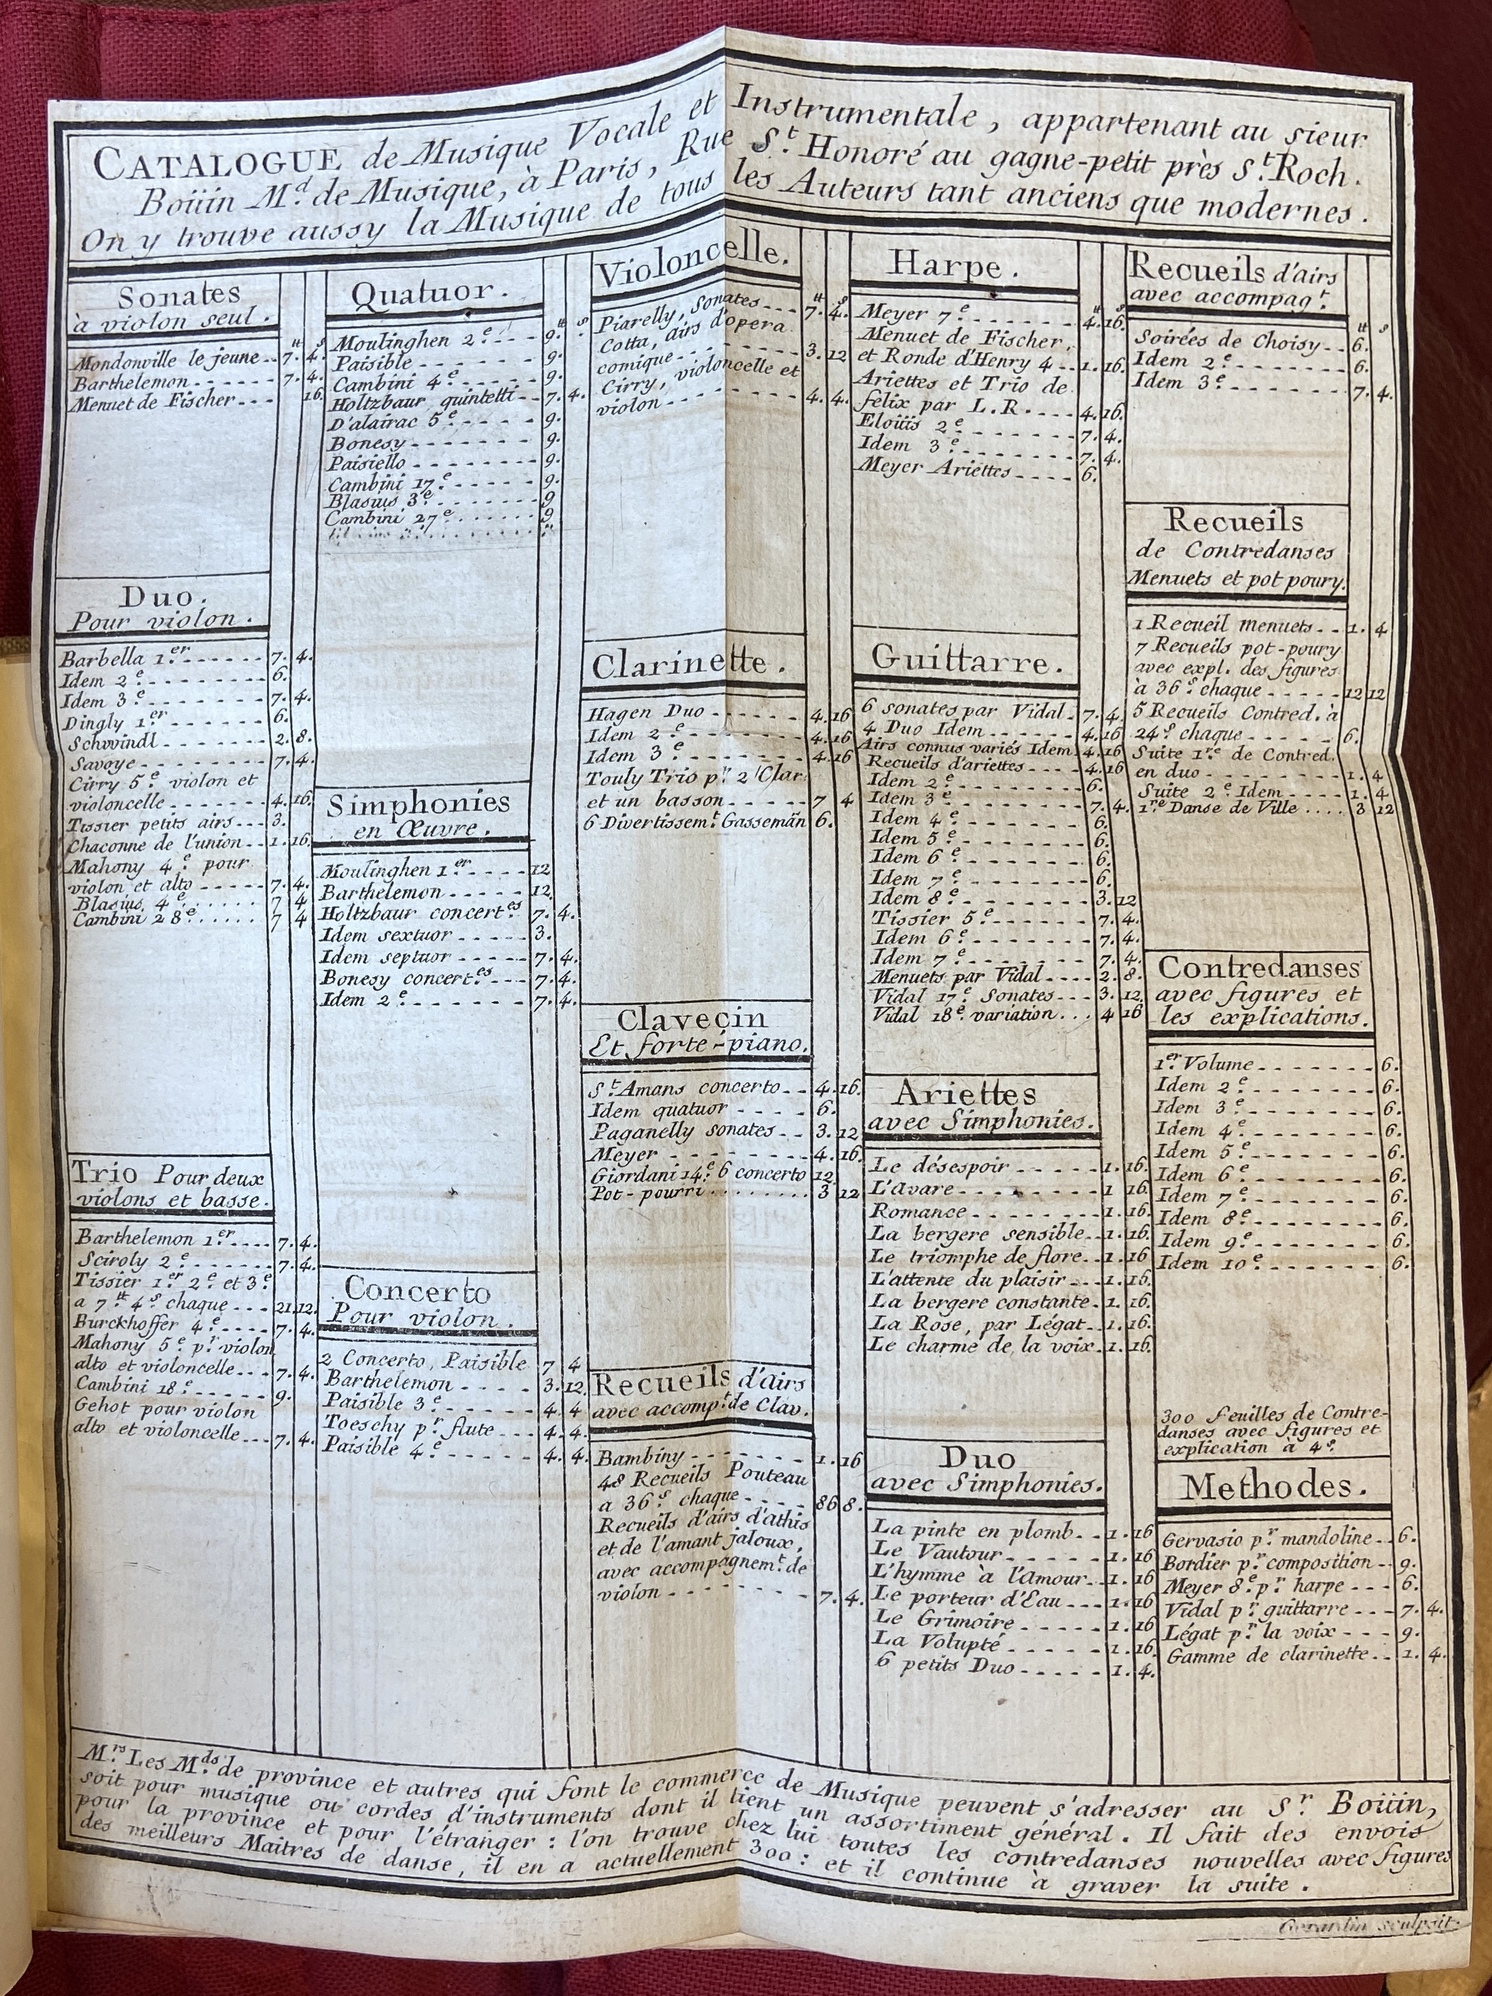 CATALOGUE de Musique Vocale et Instrumentale, appartenant au sieur
Boüin M.d de Musique, à Paris, Rue S.t Honoré au gagne-petit près S.t Roch.
On y trouve aussy la Musique de tous les Auteurs tant anciens que modernes.
Sonates
à violon seul.
Mondonville le jeune 7. 4.
Barthelemon 7. 4.
Menuet de Fischer 16.
Duo.
Pour violon.
Barbella 1.er 7. 4.
Idem 2.e 6.
Idem 3.e 7. 4.
Dingly 1.er 6.
Schwindl 2. 8.
Savoye 7. 4.
Cirry 5.e violon et
violoncelle 4. 16.
Tissier petits airs 3.
Chaconne de l'union 1. 16.
Mahony 4.e pour
violon et alto 7. 4.
Blasius, 4.e 7 4
Cambini 28.e 7 4
Trio Pour deux
violons et basse.
Barthelemon 1.er 7. 4.
Sciroly 2.e 7. 4.
Tissier 1.er 2.e et 3.e
a 7.tt 4.s chaque 21. 12.
Burckhoffer 4.e 7. 4.
Mahony 5.e p.r violon
alto et violoncelle 7. 4.
Cambini 18.e 9.
Gehot pour violon
alto et violoncelle 7. 4.
Quatuor.
tt s
Moulinghen 2.e 9.
Paisible 9.
Cambini 4.e 9.
Holtzbaur quintetti 7. 4.
D'alairac 5.e 9.
Bonesy 9.
Paisiello 9.
Cambini 17.e 9.
Blasius 3.e 9
Cambini 27.e 9
Simphonies
en Œuvre.
Moulinghen 1.er 12
Barthelemon 12
Holtzbaur concert.es 7. 4.
Idem sextuor 3.
Idem septuor 7. 4.
Bonesy concert.es 7. 4.
Idem 2.e 7. 4.
Concerto
Pour violon.
2 Concerto, Paisible 7 4
Barthelemon 3. 12.
Paisible 3.e 4. 4
Toeschy p.r flute 4. 4.
Paisible 4.e 4. 4.
Violoncelle.
tt s
Piarelly, Sonates 7. 4.
Cotta, airs d'opera
comique 3. 12
Cirry, violoncelle et
violon 4. 4.
Clarinette.
Hagen Duo 4. 16
Idem 2.e 4. 16
Idem 3.e 4. 16
Touly Trio p.r 2 Clar
et un basson 7 4
6 Divertissem.t Gasseman 6.
Clavecin
Et forte-piano.
S.t Amans concerto 4. 16.
Idem quatuor 6.
Paganelly sonates 3. 12
Meyer 4. 16.
Giordani 14.e 6 concerto 12
Pot-pourri 3 12
Recueils d'airs
avec accomp.t de Clav.
Bambiny 1. 16
48 Recueils Pouteau
a 36.s chaque 86 8.
Recueils d'airs d'athis
et de l'amant jaloux,
avec accompagnem.t de
violon 7. 4.
Harpe.
tt s
Meyer 7.e 4. 16.
Menuet de Fischer,
et Ronde d'Henry 4 1. 16.
Ariettes et Trio de
felix par L.R. 4. 16.
Eloüis 2.e 7. 4.
Idem 3.e 7. 4.
Meyer Ariettes 6.
Guittarre.
6 sonates par Vidal 7. 4.
4 Duo Idem 4. 16
Airs connus variés Idem 4. 16
Recueils d'ariettes 4. 16
Idem 2.e 6.
Idem 3.e 7. 4.
Idem 4.e 6.
Idem 5.e 6.
Idem 6.e 6.
Idem 7.e 6.
Idem 8.e 3. 12
Tissier 5.e 7. 4.
Idem 6.e 7. 4.
Idem 7.e 7. 4.
Menuets par Vidal 2. 8.
Vidal 17.e Sonates 3. 12.
Vidal 18.e variation 4 16
Ariettes
avec Simphonies.
Le désespoir 1. 16.
L'Avare 1 16.
Romance 1. 16.
La bergere sensible 1. 16.
Le triomphe de flore 1. 16
L'attente du plaisir 1. 16.
La bergere constante 1. 16.
La Rose, par Légat 1. 16.
Le charme de la voix 1. 16.
Duo
avec Simphonies.
La pinte en plomb 1. 16
Le Vautour 1. 16
L'hymme à l'Amour 1. 16
Le porteur d'Eau 1. 16
Le Grimoire 1. 16
La Volupté 1. 16.
6 petits Duo 1. 4.
Recueils d'airs
avec accompag.t
tt s
Soirées de Choisy 6.
Idem 2.e 6.
Idem 3.e 7. 4.
Recueils
de Contredanses
Menuets et pot poury.
1 Recueil menuets 1. 4
7 Recueils pot-poury
avec expl. des figures
à 36.s chaque 12 12
5 Recueils Contred. à
24.s chaque 6.
Suite 1.re de Contred.
en duo 1. 4
Suite 2.e Idem 1. 4
1.re Danse de Ville 3 12
Contredanses
avec figures et
les explications.
1.er Volume 6.
Idem 2.e 6.
Idem 3.e 6.
Idem 4.e 6.
Idem 5.e 6.
Idem 6.e 6.
Idem 7.e 6.
Idem 8.e 6.
Idem 9.e 6.
Idem 10.e 6.
300 feuilles de Contre-
danses avec figures et
explication à 4.s
Methodes.
Gervasio p.r mandoline 6.
Bordier p.r composition 9.
Meyer 8.e p.r harpe 6.
Vidal p.r guittarre 7. 4.
Légat p.r la voix 9.
Gamme de clarinette 1. 4.
M.rs Les M.ds de province et autres qui font le commerce de Musique peuvent s'adresser au S.r Boüin,
soit pour musique ou cordes d'instruments dont il tient un assortiment général. Il fait des envois
pour la province et pour l'étranger : l'on trouve chez lui toutes les contredanses nouvelles avec figures
des meilleurs Maîtres de danse, il en a actuellement 300 : et il continue à graver la suite.
Gerardin sculpsit.